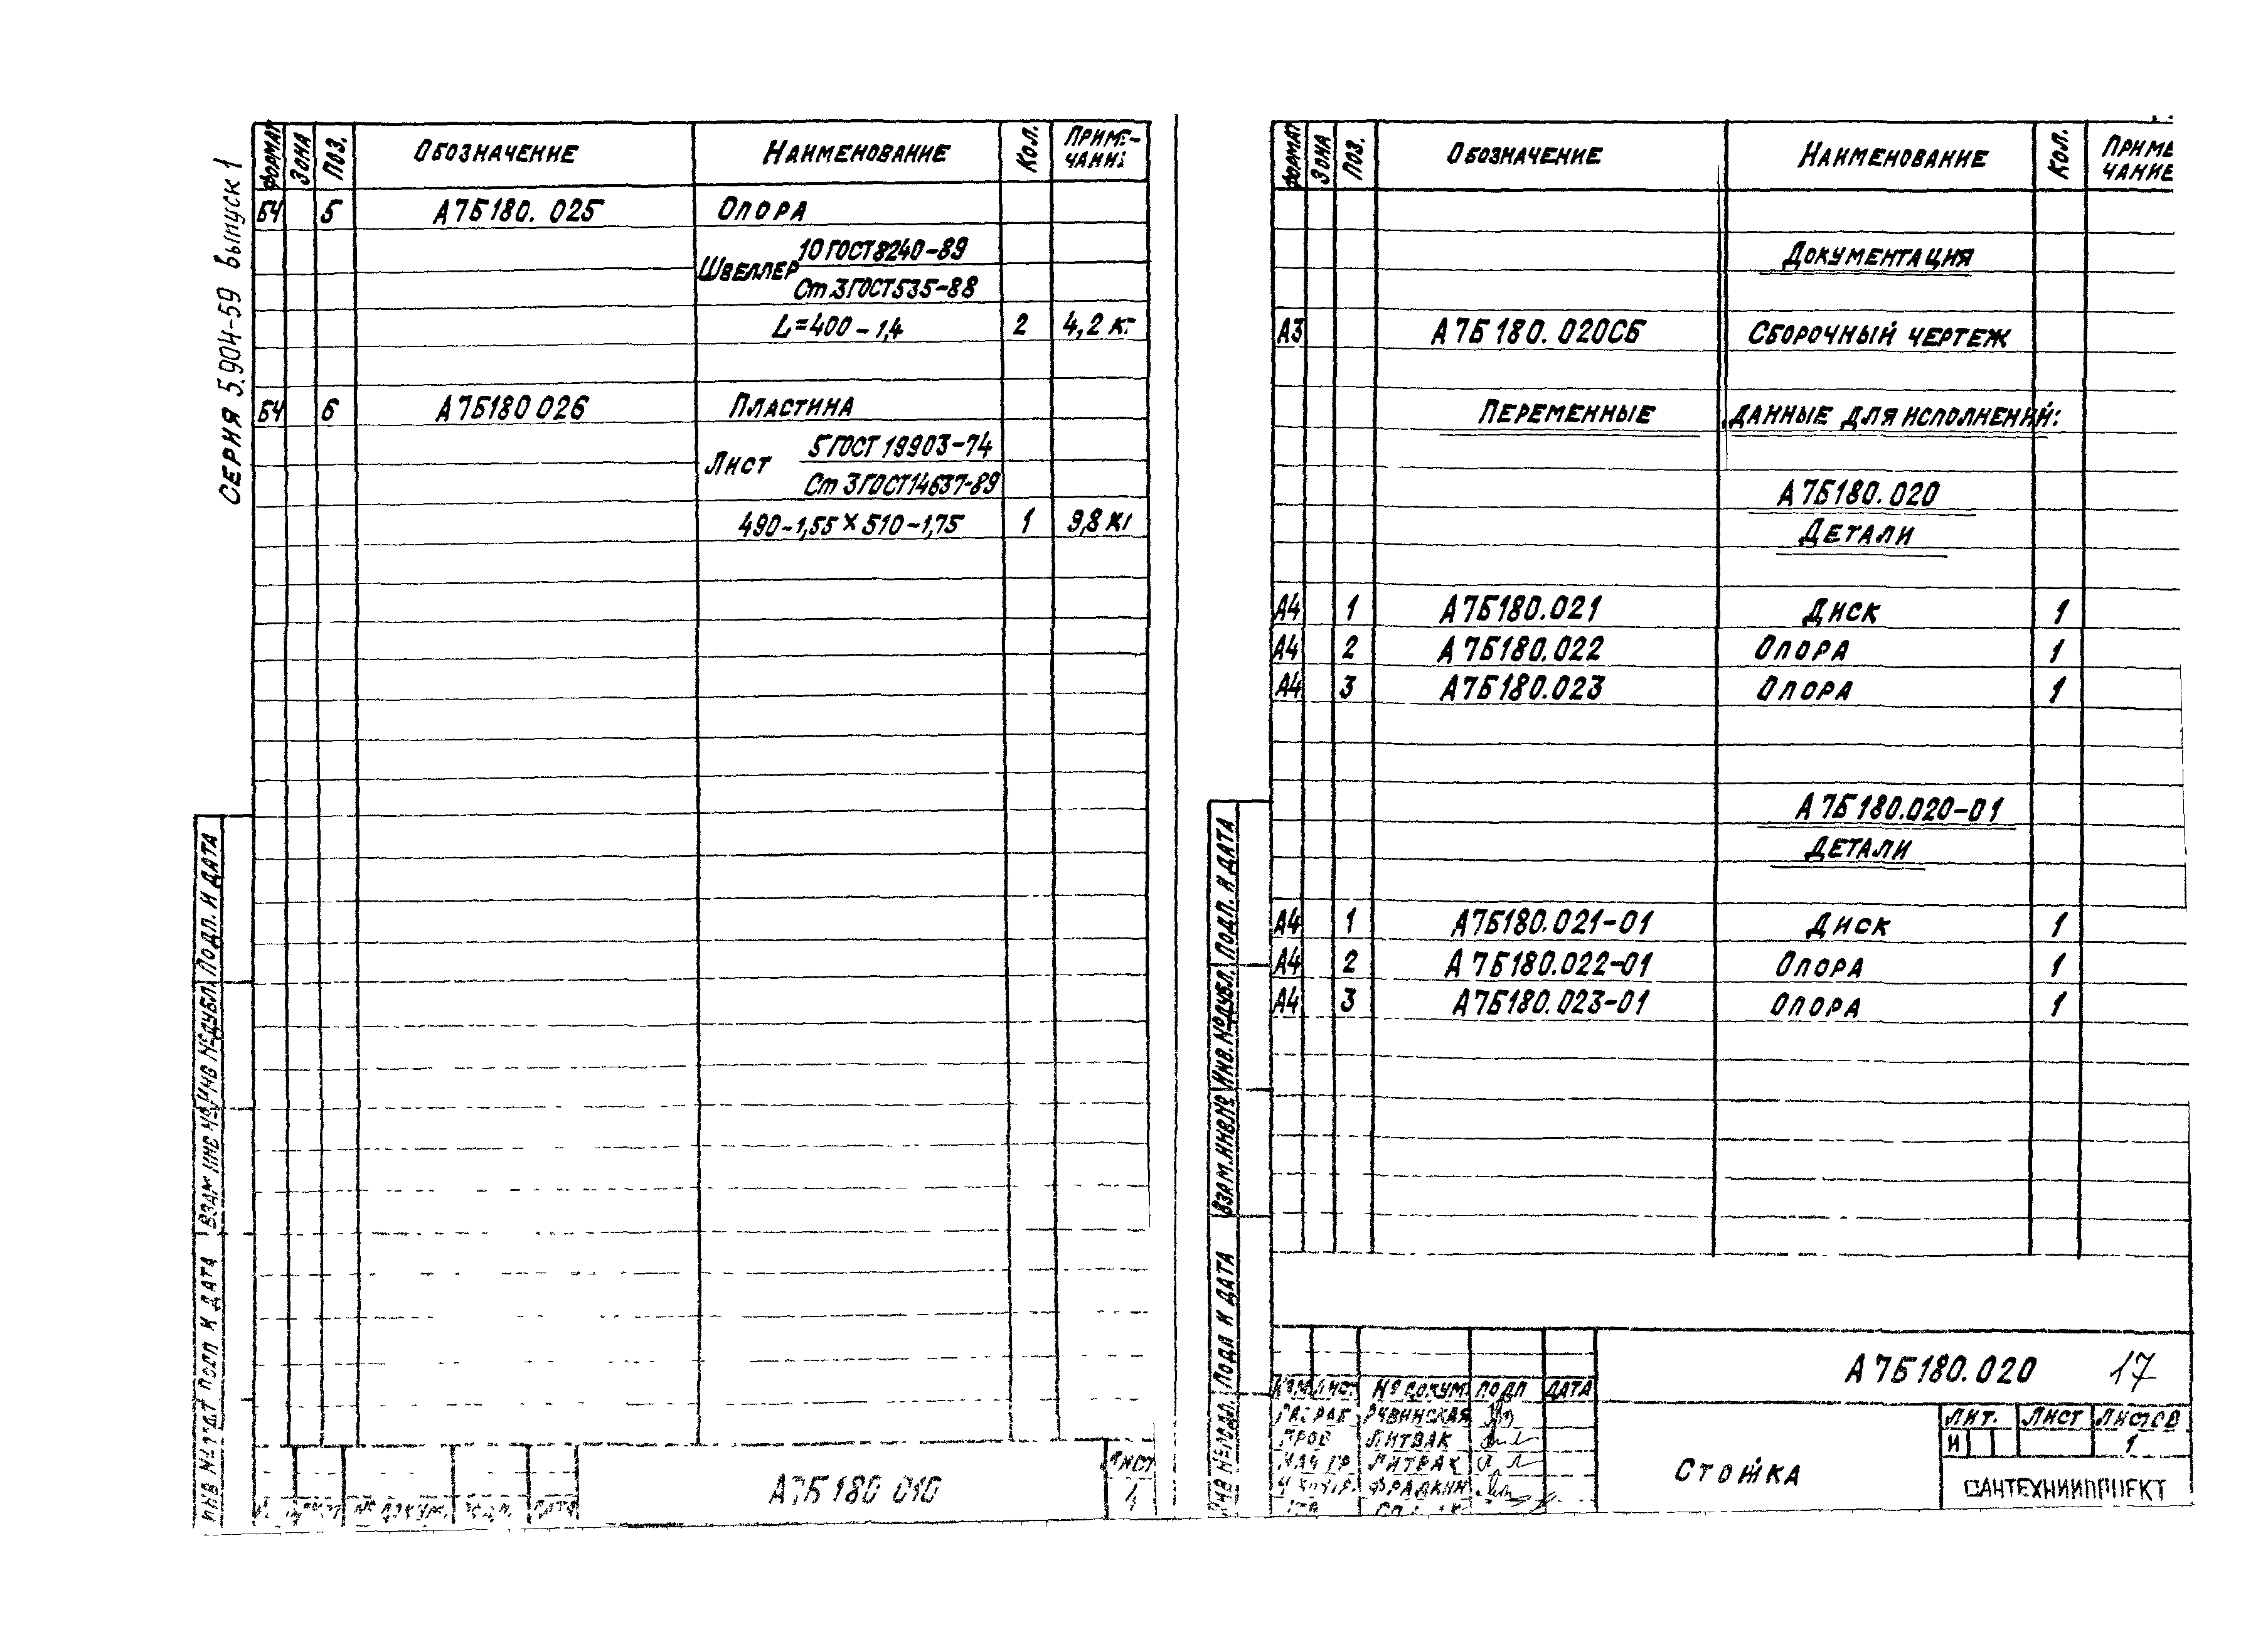 СЕРИЯ 5.904-59 выпуск 1
ФОРМАТ ЗОНА ПОЗ. ОБОЗНАЧЕНИЕ НАИМЕНОВАНИЕ КОЛ. ПРИМЕ-
ЧАНИЕ
БЧ 5 А7Б180.025 ОПОРА
ШВЕЛЛЕР 10 ГОСТ 8240-89
Ст.3 ГОСТ 535-88
L=400-1,4 2 4,2 кг
БЧ 6 А7Б180 026 ПЛАСТИНА
ЛИСТ 5 ГОСТ 19903-74
Ст 3 ГОСТ 14637-89
490-1,55×510-1,75 1 9,8 кг
ИНВ № ПОДЛ ПОДП И ДАТА ВЗАМ ИНВ № ИНВ № ДУБЛ. ПОДП. И ДАТА
№ ДОКУМ. ПОДП. ДАТА
А7Б180 010
ЛИСТ
4
ФОРМАТ ЗОНА ПОЗ. ОБОЗНАЧЕНИЕ НАИМЕНОВАНИЕ КОЛ. ПРИМЕ
ЧАНИЕ
ДОКУМЕНТАЦИЯ
А3 А7Б180.020СБ СБОРОЧНЫЙ ЧЕРТЕЖ
ПЕРЕМЕННЫЕ ДАННЫЕ ДЛЯ ИСПОЛНЕНИЙ:
А7Б180.020
ДЕТАЛИ
А4 1 А7Б180.021 ДИСК 1
А4 2 А7Б180.022 ОПОРА 1
А4 3 А7Б180.023 ОПОРА 1
А7Б180.020-01
ДЕТАЛИ
А4 1 А7Б180.021-01 ДИСК 1
А4 2 А7Б180.022-01 ОПОРА 1
А4 3 А7Б180.023-01 ОПОРА 1
ИНВ № ПОДЛ. ПОДП И ДАТА ВЗАМ.ИНВ.№ ИНВ.№ ДУБЛ. ПОДП. И ДАТА
А7Б180.020 17
ИЗМ ЛИСТ № ДОКУМ. ПОДП ДАТА
РАЗРАБ РУВИНСКАЯ
ПРОВ ЛИТВАК
НАЧ ГР ЛИТВАК
Н КОНТР. ФРАДКИН
СТОЙКА
ЛИТ. ЛИСТ ЛИСТОВ
И 1
САНТЕХНИИПРОЕКТ